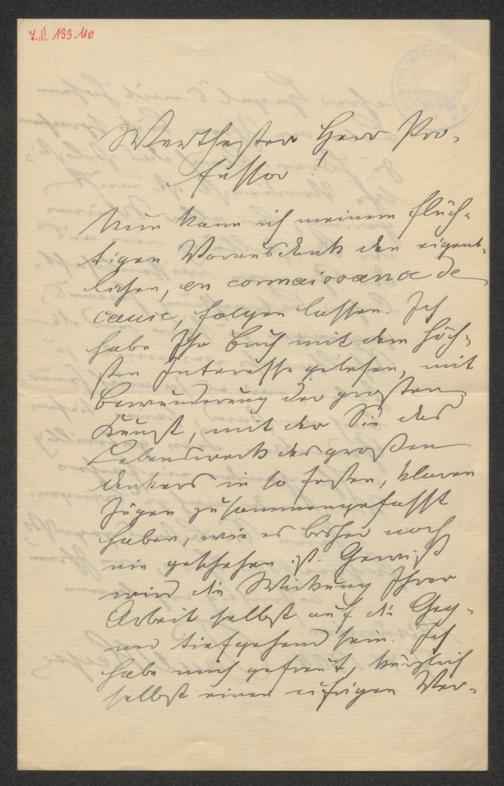 J.N. 133.110
Werthester Herr Pro-
fessor!
Nun kann ich meinem flüch-
tigen Vorausdank den eigent-
lichen, en connaissance de
cause, folgen lassen. Ich
habe Ihr Buch mit dem höch-
sten Interesse gelesen, mit
Bewunderung der großen
Kunst, mit der Sie das
Lebenswerk des großen
Denkers in so festen, klaren
Zügen zusammengefasst
haben, wie es bisher noch
nie geschehen ist. Gewiß
wird die Wirkung Ihrer
Arbeit selbst auf die Geg-
ner tiefgehend sein. Ich
habe mich gefreut, kürzlich
selbst einen eifrigen Ver-